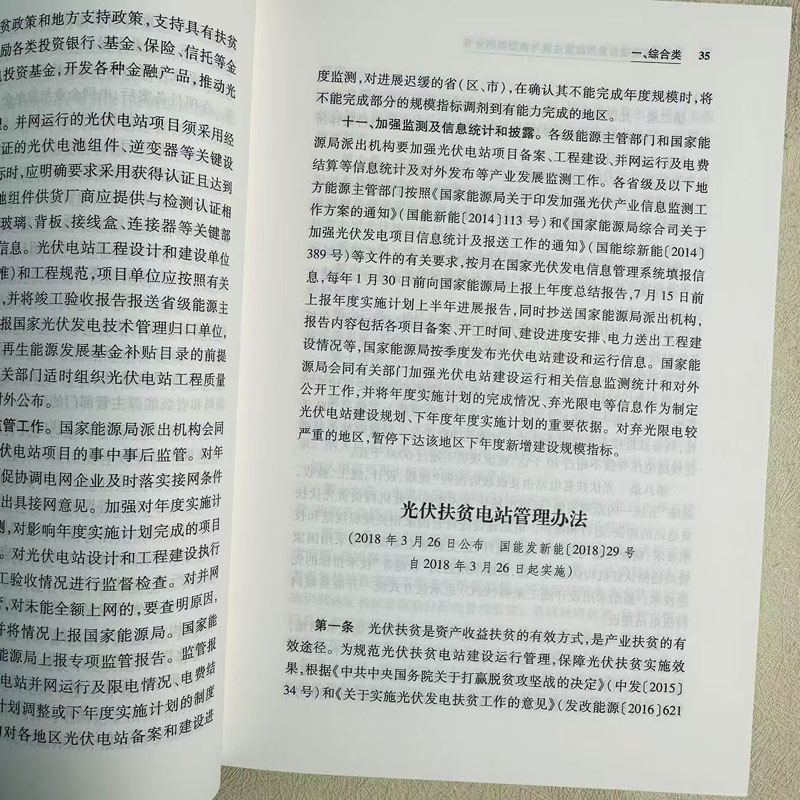 贫政策和地方支持政策，支持具有扶贫
励各类投资银行、基金、保险、信托等金
投资基金，开发各种金融产品，推动光
。并网运行的光伏电站项目须采用经
证的光伏电池组件、逆变器等关键设
标时，应明确要求采用获得认证且达到
池组件供货厂商应提供与检测认证相
玻璃、背板、接线盒、连接器等关键部
信息。光伏电站工程设计和建设单位
准）和工程规范，项目单位应按照有关
，并将竣工验收报告报送省级能源主
报国家光伏发电技术管理归口单位，
再生能源发展基金补贴目录的前提
关部门适时组织光伏电站工程质量
对外公布。
监管工作。国家能源局派出机构会同
伏电站项目的事中事后监管。对年
促协调电网企业及时落实接网条件
出具接网意见。加强对年度实施计
测，对影响年度实施计划完成的项目
。对光伏电站设计和工程建设执行
工验收情况进行监督检查。对并网
，对未能全额上网的，要查明原因，
并将情况上报国家能源局。国家能
能源局上报专项监管报告。监管报
电站并网运行及限电情况、电费结
计划调整或下年度实施计划的制度
对各地区光伏电站备案和建设进
一、综合类 35
度监测，对进展迟缓的省（区、市），在确认其不能完成年度规模时，将
不能完成部分的规模指标调剂到有能力完成的地区。
十一、加强监测及信息统计和披露。各级能源主管部门和国家能
源局派出机构要加强光伏电站项目备案、工程建设、并网运行及电费
结算等信息统计及对外发布等产业发展监测工作。各省级及以下地
方能源主管部门按照《国家能源局关于印发加强光伏产业信息监测工
作方案的通知》（国能新能〔2014〕113号）和《国家能源局综合司关于
加强光伏发电项目信息统计及报送工作的通知》（国能综新能〔2014〕
389号）等文件的有关要求，按月在国家光伏发电信息管理系统填报信
息，每年1月30日前向国家能源局上报上年度总结报告，7月15日前
上报年度实施计划上半年进展报告，同时抄送国家能源局派出机构，
报告内容包括各项目备案、开工时间、建设进度安排、电力送出工程建
设情况等，国家能源局按季度发布光伏电站建设和运行信息。国家能
源局会同有关部门加强光伏电站建设运行相关信息监测统计和对外
公开工作，并将年度实施计划的完成情况、弃光限电等信息作为制定
光伏电站建设规划、下年度年度实施计划的重要依据。对弃光限电较
严重的地区，暂停下达该地区下年度新增建设规模指标。
光伏扶贫电站管理办法
（2018年3月26日公布 国能发新能〔2018〕29号
自2018年3月26日起实施）
第一条 光伏扶贫是资产收益扶贫的有效方式，是产业扶贫的有
效途径。为规范光伏扶贫电站建设运行管理，保障光伏扶贫实施效
果，根据《中共中央国务院关于打赢脱贫攻坚战的决定》（中发〔2015〕
34号）和《关于实施光伏发电扶贫工作的意见》（发改能源〔2016〕621